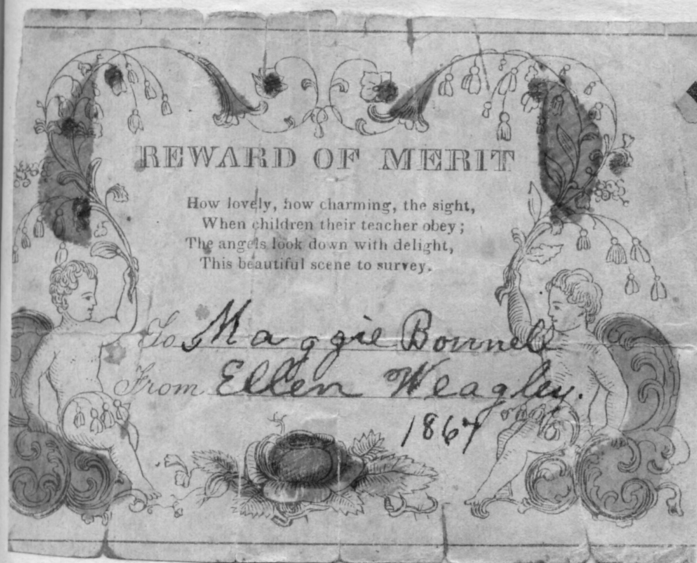 REWARD OF MERIT
How lovely, how charming, the sight,
When children their teacher obey;
The angels look down with delight,
This beautiful scene to survey.
To Maggie Bonnell
From Ellen Weagley.
1867